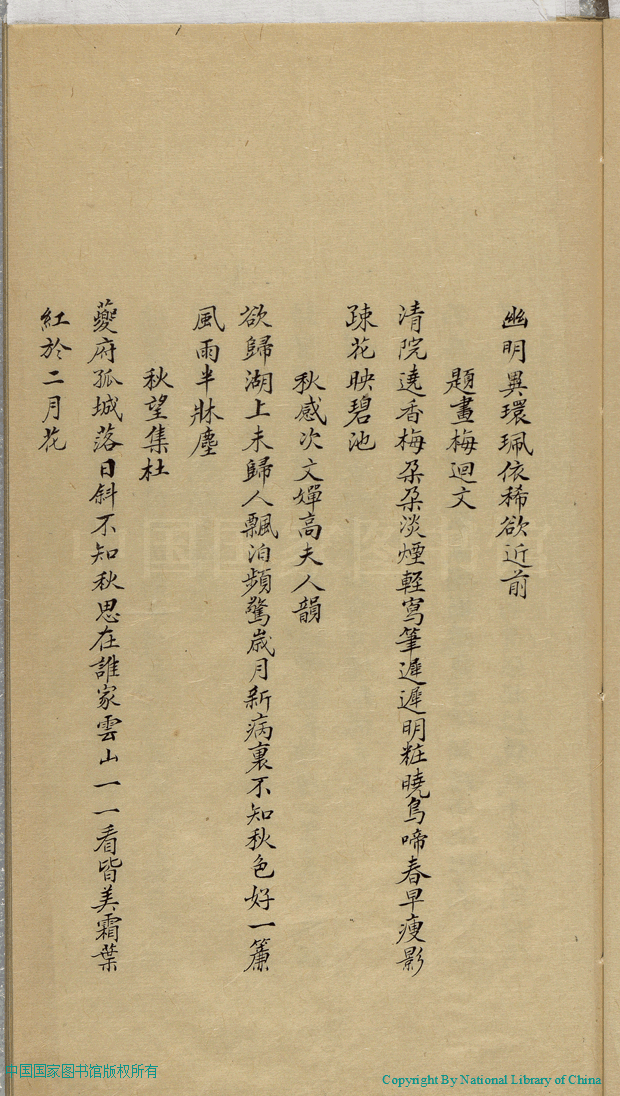 幽明異環珮依稀欲近前
題畫梅迴文
清院遶香梅朶朶淡煙輕寫筆遲遲明粧曉鳥啼春早瘦影
疎花映碧池
秋感次文嬋高夫人韻
欲歸湖上未歸人飄泊頻驚歲月新病裏不知秋色好一簾
風雨半牀塵
秋望集杜
夔府孤城落日斜不知秋思在誰家雲山一一看皆美霜葉
紅於二月花
中国国家图书馆版权所有
Copyright By National Library of China